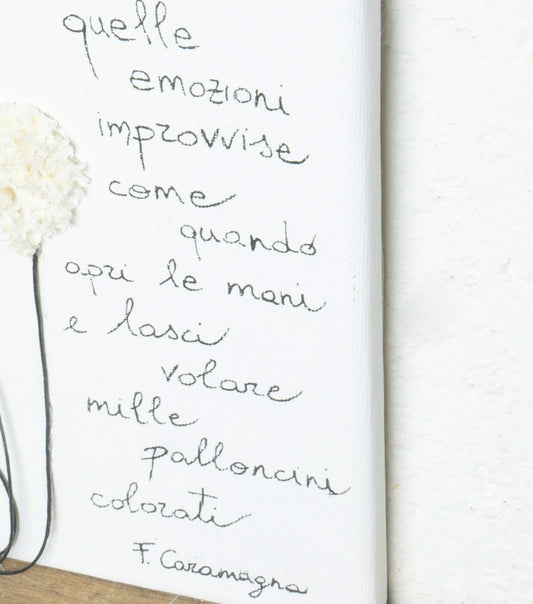 quelle
emozioni
improvvise
come
quando
apri le mani
e lasci
volare
mille
palloncini
colorati
F. Caramagna